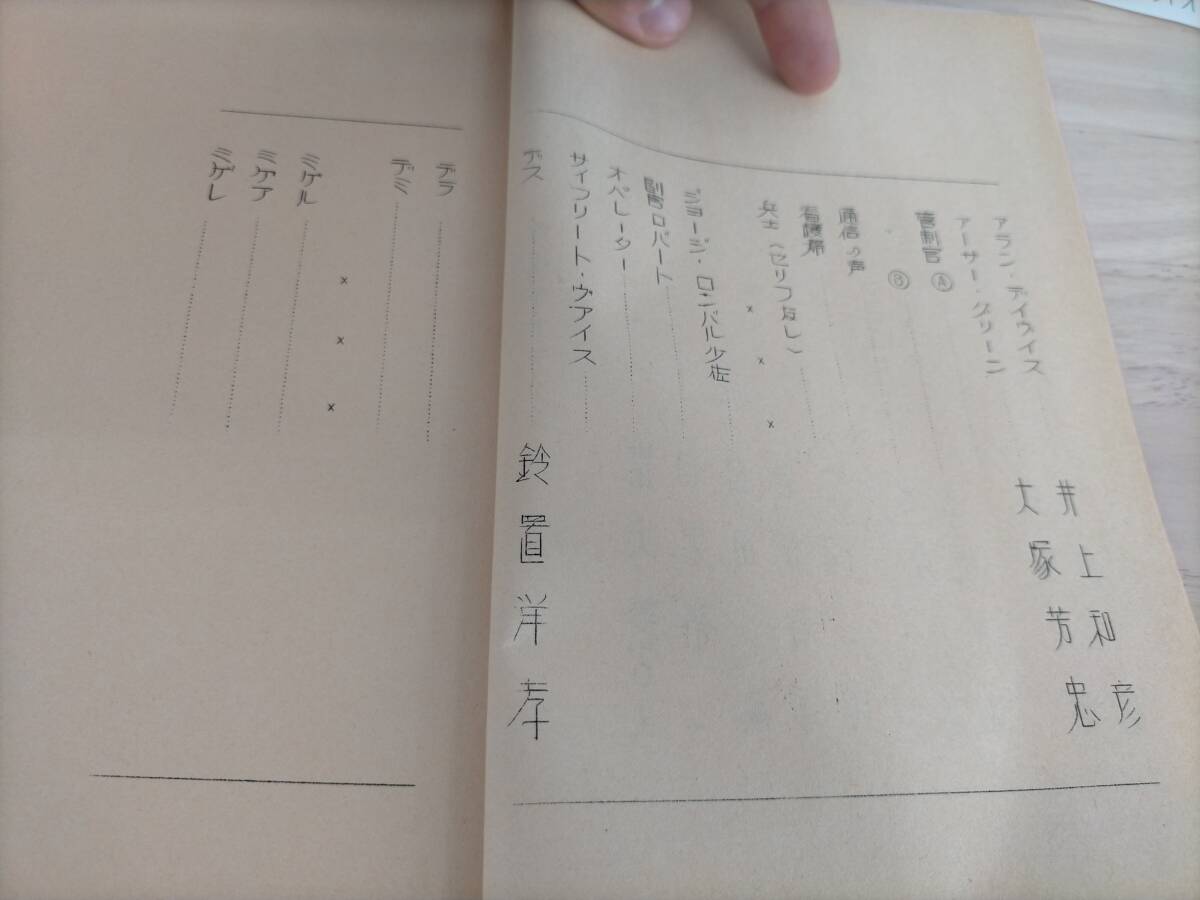 アラン・デイヴイス……井上和彦
アーサー・グリーン……大塚芳忠
管制官Ⓐ……
Ⓑ……
通信の声……
看護婦……
兵士（セリフなし）
× × ×
ジョージ・ロンバル少佐……
副官ロバート……
オペレーター……
サイフリート・ヴアイス……
デス……鈴置洋孝
デラ……
デミ……
× × ×
ミゲル……
ミゲア……
ミゲレ……